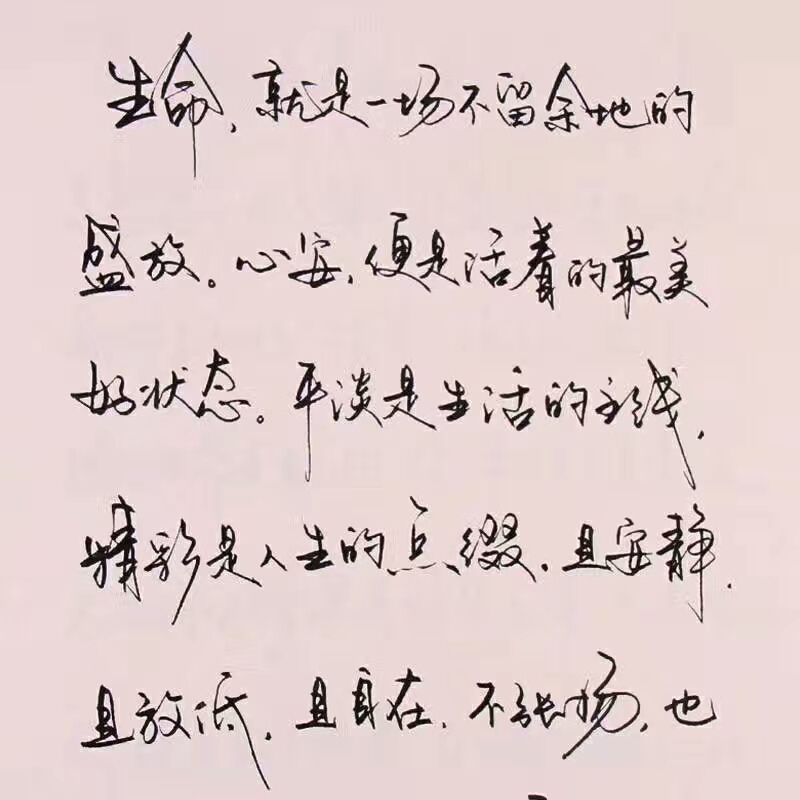 生命，就是一场不留余地的
盛放。心安，便是活着的最美
好状态。平淡是生活的主线，
精彩是人生的点缀，且安静，
且放低，且自在，不张扬，也